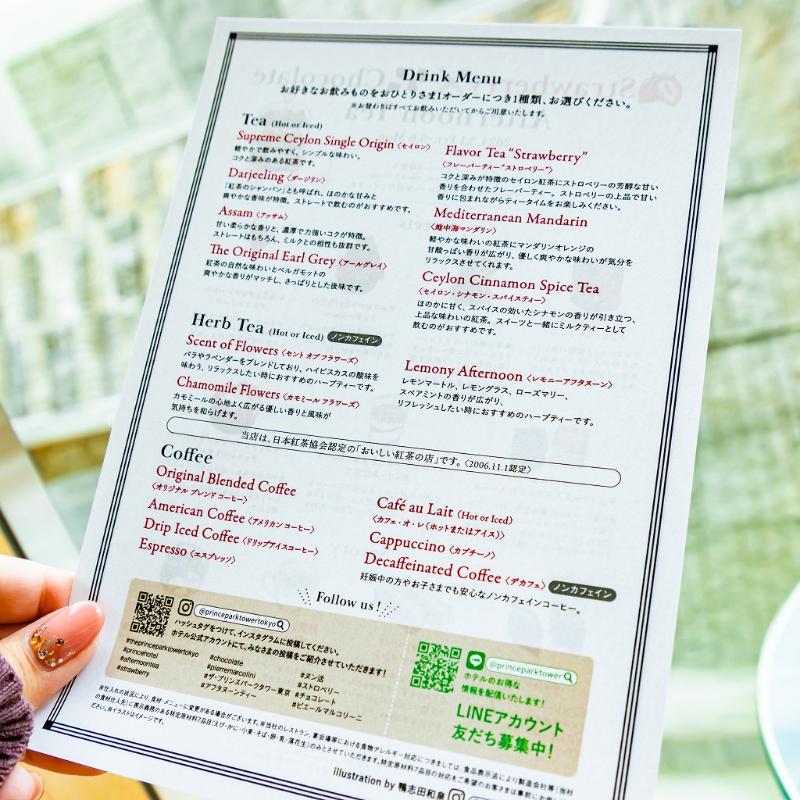 Drink Menu
お好きなお飲みものをおひとりさま1オーダーにつき1種類、お選びください。
※お替わりはすべてお飲みいただいてからご用意いたします。
Tea (Hot or Iced)
Supreme Ceylon Single Origin〈セイロン〉
軽やかで飲みやすく、シンプルな味わい。
コクと深みのある紅茶です。
Darjeeling〈ダージリン〉
「紅茶のシャンパン」とも呼ばれ、ほのかな甘みと
爽やかな香味が特徴。ストレートで飲むのがおすすめです。
Assam〈アッサム〉
甘い柔らかな香りと、濃厚で力強いコクが特徴。
ストレートはもちろん、ミルクとの相性も抜群です。
The Original Earl Grey〈アールグレイ〉
紅茶の自然な味わいとベルガモットの
爽やかな香りがマッチし、さっぱりとした後味です。
Flavor Tea “Strawberry”
〈フレーバーティー“ストロベリー”〉
コクと深みが特徴のセイロン紅茶にストロベリーの芳醇な甘い
香りを合わせたフレーバーティー。ストロベリーの上品で甘い
香りに包まれながらティータイムをお楽しみください。
Mediterranean Mandarin
〈地中海マンダリン〉
軽やかな味わいの紅茶にマンダリンオレンジの
甘酸っぱい香りが広がり、優しく爽やかな味わいが気分を
リラックスさせてくれます。
Ceylon Cinnamon Spice Tea
〈セイロン・シナモン・スパイスティー〉
ほのかに甘く、スパイスの効いたシナモンの香りが引き立つ、
上品な味わいの紅茶。スイーツと一緒にミルクティーとして
飲むのがおすすめです。
Herb Tea (Hot or Iced) ノンカフェイン
Scent of Flowers〈セント オブ フラワーズ〉
バラやラベンダーをブレンドしており、ハイビスカスの酸味を
味わう、リラックスしたい時におすすめのハーブティーです。
Chamomile Flowers〈カモミール フラワーズ〉
カモミールの心地よく広がる優しい香りと風味が
気持ちを和らげます。
Lemony Afternoon〈レモニーアフタヌーン〉
レモンマートル、レモングラス、ローズマリー、
スペアミントの香りが広がり、
リフレッシュしたい時におすすめのハーブティーです。
当店は、日本紅茶協会認定の「おいしい紅茶の店」です。〈2006.11.1認定〉
Coffee
Original Blended Coffee
〈オリジナル ブレンド コーヒー〉
American Coffee〈アメリカン コーヒー〉
Drip Iced Coffee〈ドリップアイスコーヒー〉
Espresso〈エスプレッソ〉
Café au Lait (Hot or Iced)
〈カフェ・オ・レ(ホットまたはアイス)〉
Cappuccino〈カプチーノ〉
Decaffeinated Coffee〈デカフェ〉ノンカフェイン
妊娠中の方やお子さまでも安心なノンカフェインコーヒー。
Follow us!
@princeparktowertokyo
ハッシュタグをつけて、インスタグラムに投稿してください。
ホテル公式アカウントにて、みなさまの投稿をご紹介させていただきます!
#theprinceparktowertokyo
#princehotel
#afternoontea
#strawberry
#chocolate
#pierremarcolini
#ザ・プリンスパークタワー東京
#アフタヌーンティー
#ヌン活
#ストロベリー
#チョコレート
#ピエールマルコリーニ
@princeparktower
ホテルのお得な
情報を配信いたします!
LINEアカウント
友だち募集中!
※仕入れの状況により、食材・メニューに変更がある場合がございます。※当社のレストラン、宴会場等における食物アレルギー対応につきましては、食品表示法により製造会社等(当社
の食材仕入先)に掲示義務のある特定原材料7品目(えび・かに・小麦・そば・卵・乳・落花生)のみとさせていただきます。特定原材料7品目の対応をご希望のお客さまは事前にお
※イラストはイメージです。
illustration by 鴨志田和泉